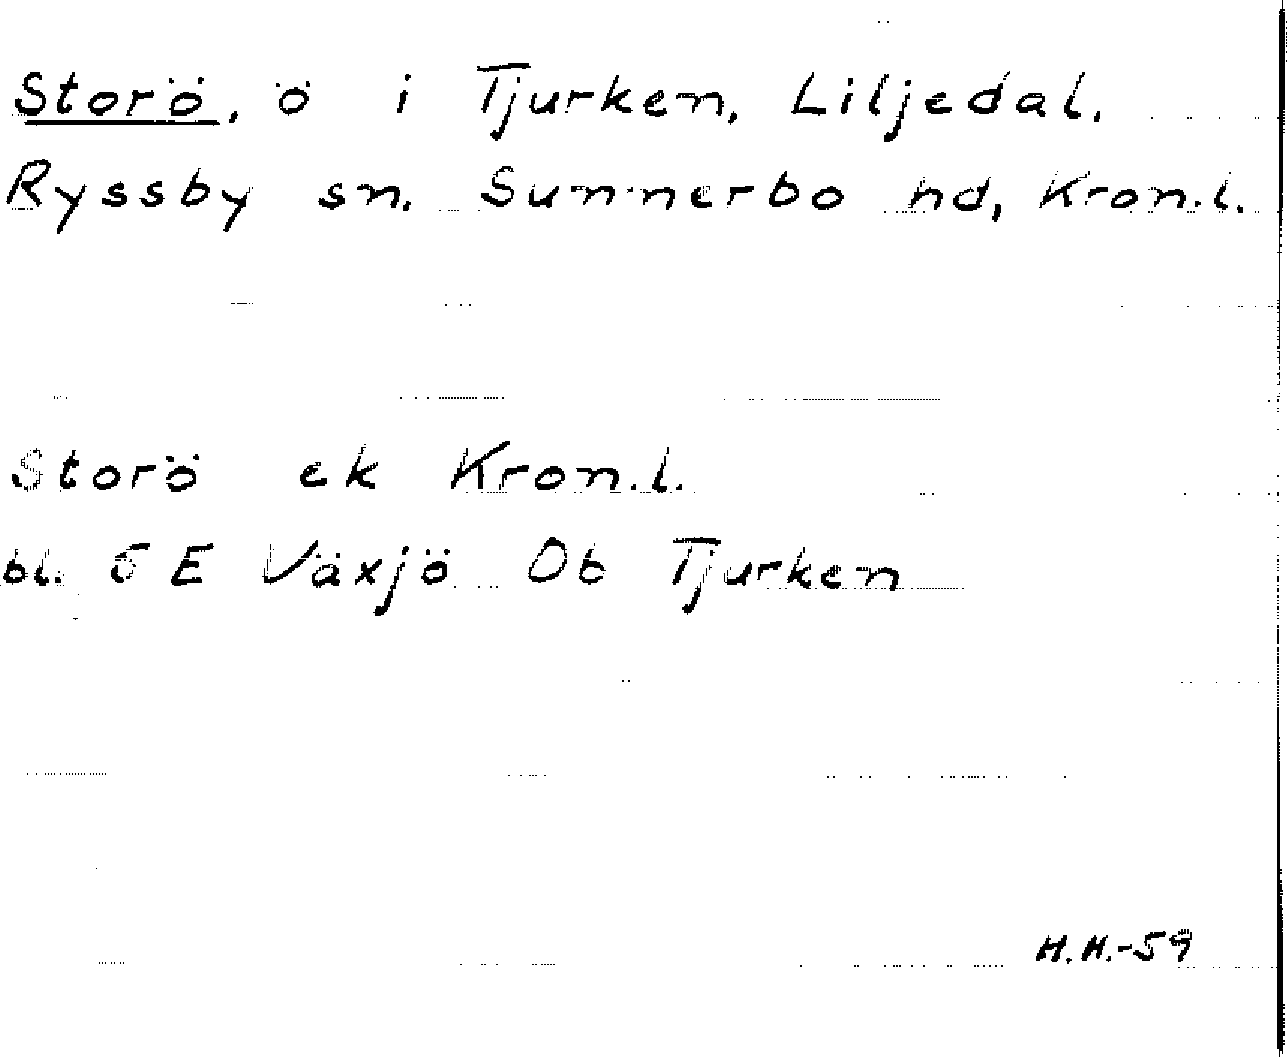 Storö, ö i Tjurken, Liljedal.
Ryssby sn. Sunnerbo hd, Kron.l.
Storö ek Kron.l.
bl. 5 E Växjö Ob Tjurken
H.H.-59